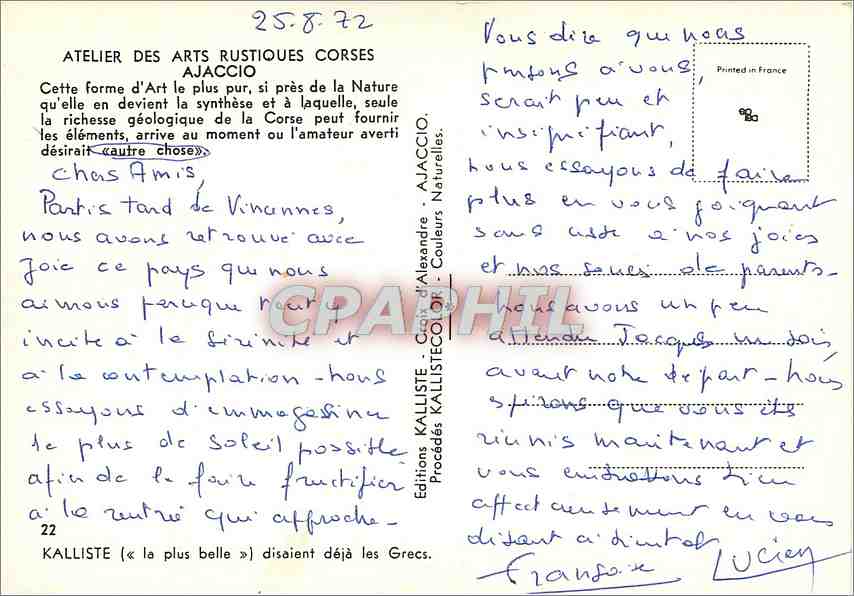 25.8.72
ATELIER DES ARTS RUSTIQUES CORSES
AJACCIO
Cette forme d'Art le plus pur, si près de la Nature
qu'elle en devient la synthèse et à laquelle, seule
la richesse géologique de la Corse peut fournir
les éléments, arrive au moment ou l'amateur averti
désirait «autre chose».
Chers Amis,
Partis tard de Vincennes,
nous avons retrouvé avec
Joie ce pays que nous
aimons parceque tout y
incite à la sérénité et
à la contemplation - nous
essayons d'emmagasiner
le plus de soleil possible
afin de le faire fructifier
à la rentrée qui approche -
22
KALLISTE (« la plus belle ») disaient déjà les Grecs.
Editions KALLISTE . Croix d'Alexandre . AJACCIO.
Procédés KALLISTECOLOR - Couleurs Naturelles.
Printed in France
Vous dire que nous
pensons à vous,
serait peu et
insignifiant,
nous essayons de faire
plus en vous joignant
sans cesse à nos joies
et nos soucis de parents -
nous avons un peu
attendu Jacques un soir
avant notre départ - nous
espérons que vous êtes
réunis maintenant et
vous embrassons bien
affectueusement en vous
disant à bientôt
Françoise Lucien
CPAPHIL